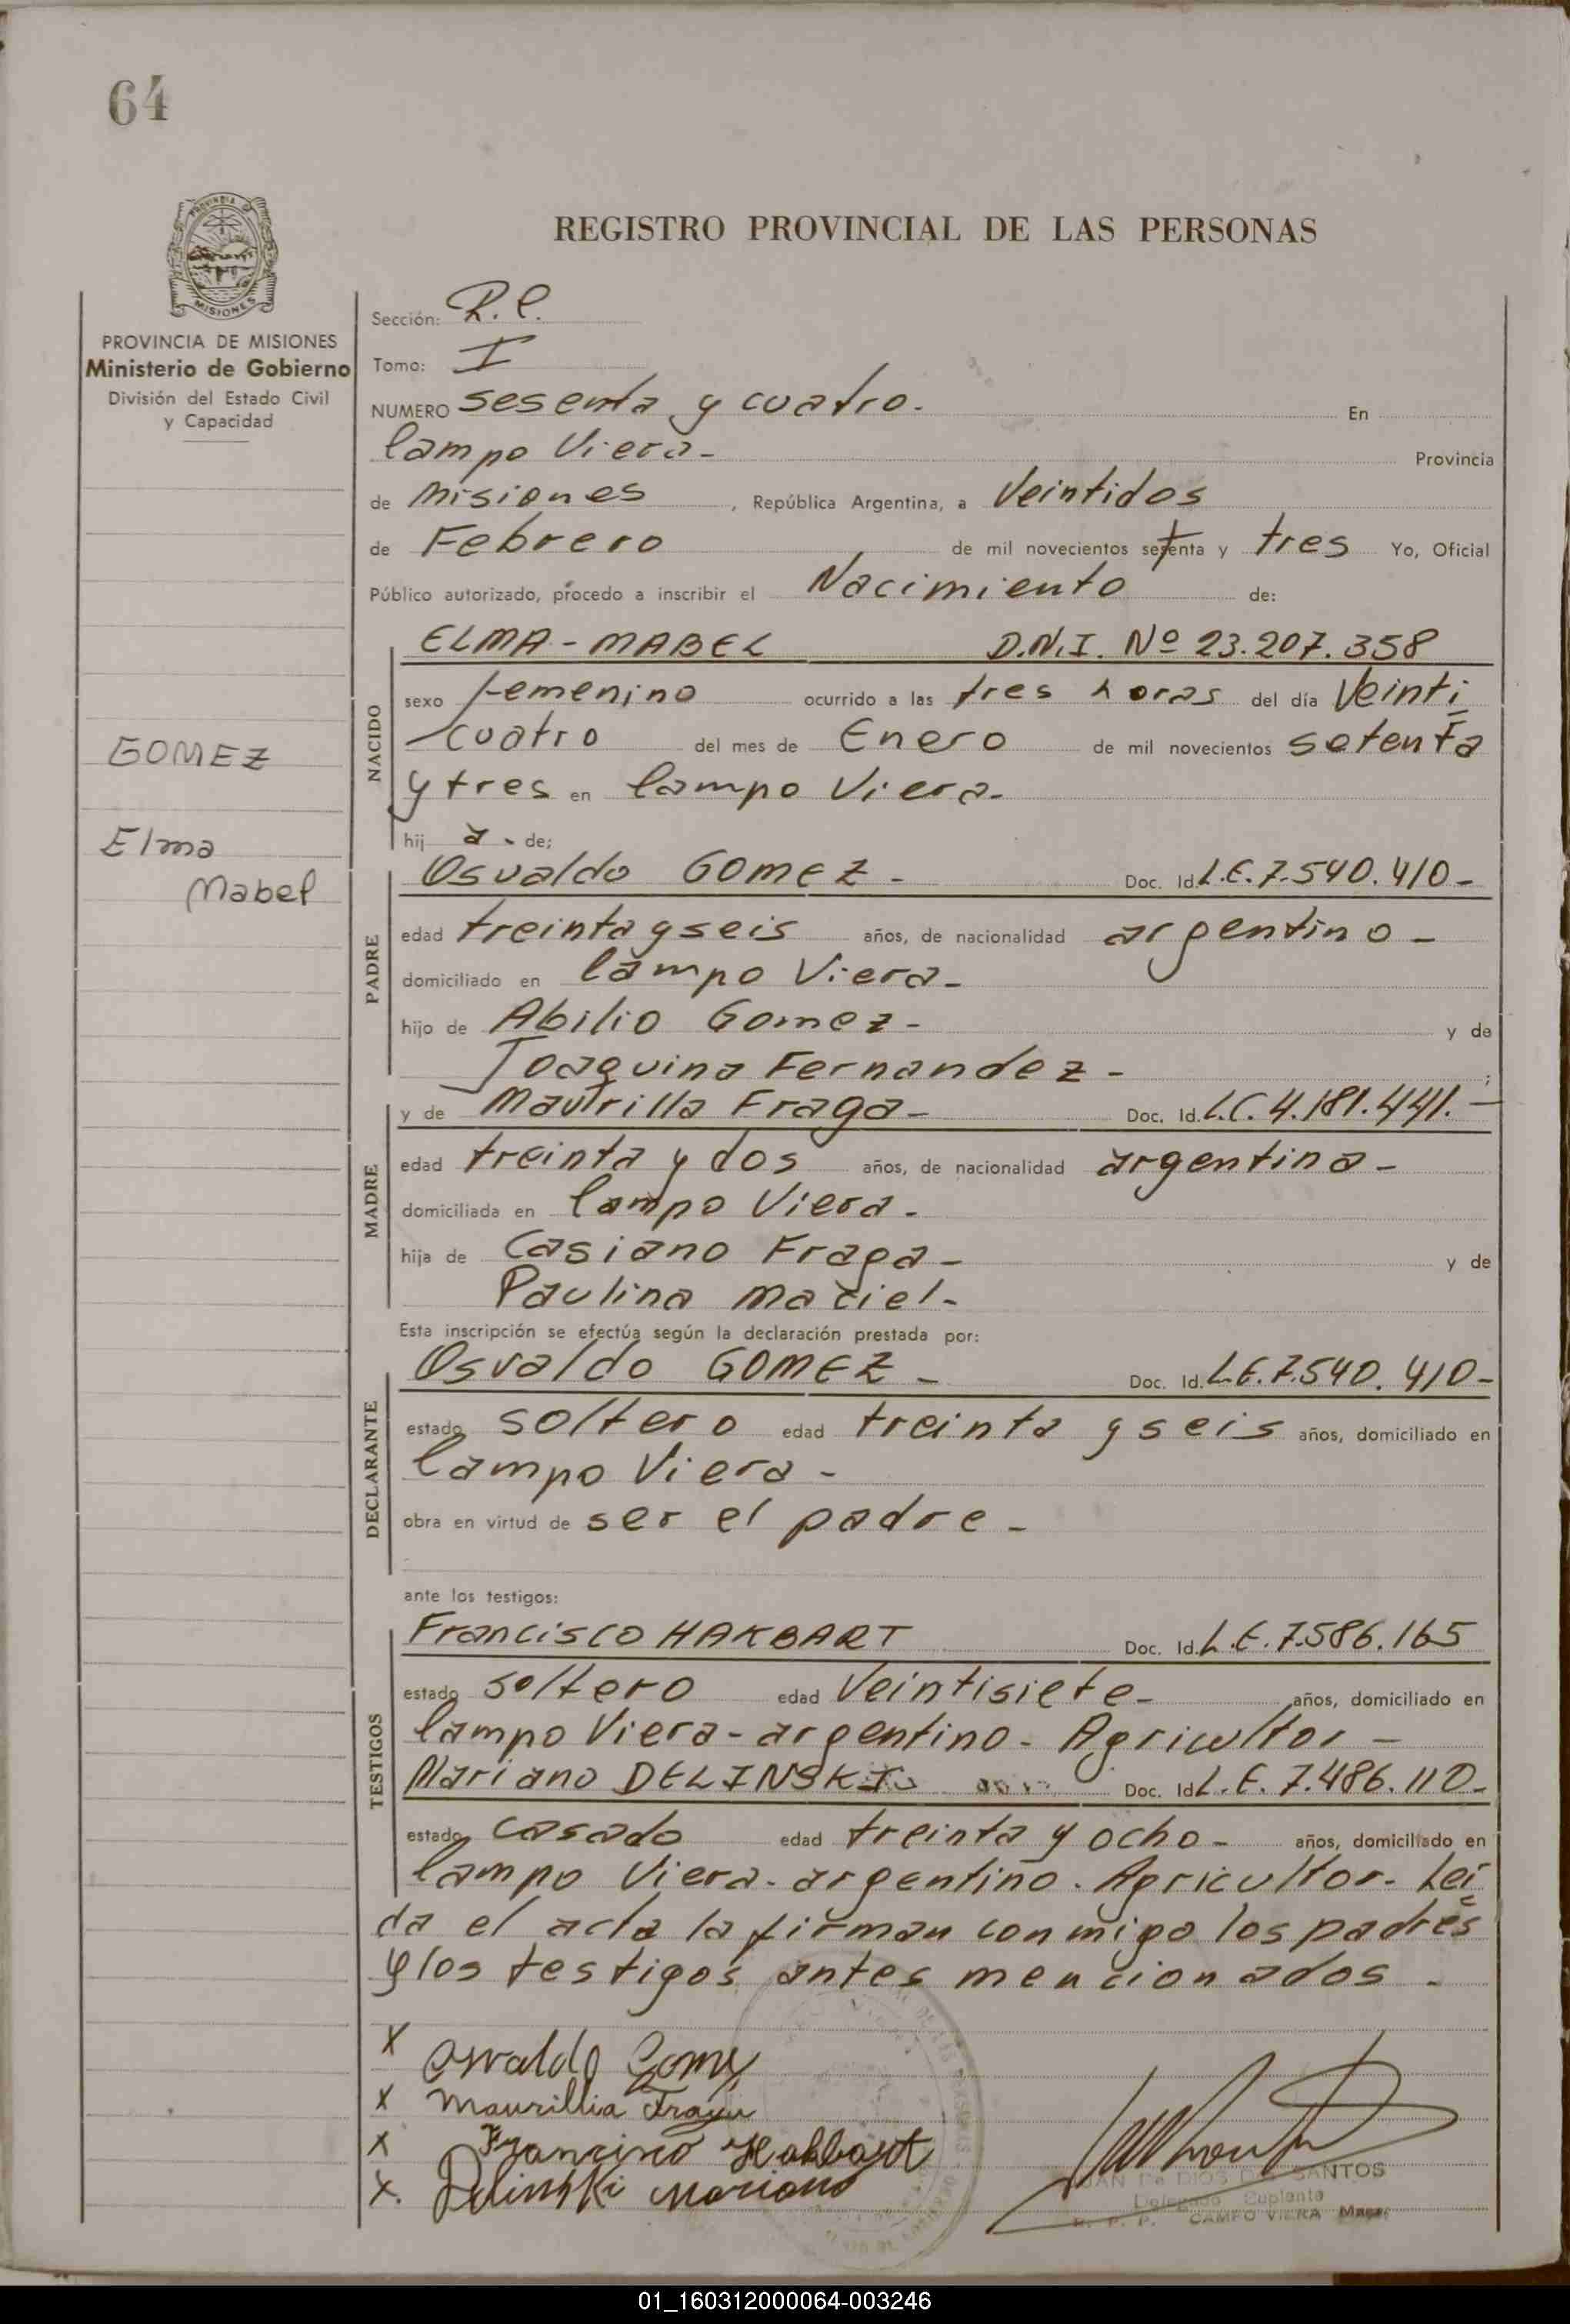 64
PROVINCIA
MISIONES
PROVINCIA DE MISIONES
Ministerio de Gobierno
División del Estado Civil
y Capacidad
GOMEZ
Elma
Mabel
REGISTRO PROVINCIAL DE LAS PERSONAS
Sección: R.C.
Tomo: I
NUMERO sesenta y cuatro. En
Campo Viera- Provincia
de Misiones, República Argentina, a Veintidos
de Febrero de mil novecientos setenta y tres Yo, Oficial
Público autorizado, procedo a inscribir el Nacimiento de:
NACIDO
ELMA - MABEL D.N.I. Nº 23.207.358
sexo femenino ocurrido a las tres horas del día Veinti
cuatro del mes de Enero de mil novecientos setenta
y tres en Campo Viera-
hij a - de;
PADRE
Osvaldo GOMEZ - Doc. Id. L.E. 7.540.410-
edad treinta y seis años, de nacionalidad argentino-
domiciliado en Campo Viera-
hijo de Abilio Gomez- y de
Joaquina Fernandez- ;
MADRE
y de Maurilla Fraga- Doc. Id. L.C. 4.181.441.-
edad treinta y dos años, de nacionalidad argentina-
domiciliada en Campo Viera.
hija de Casiano Fraga- y de
Paulina Maciel-
Esta inscripción se efectúa según la declaración prestada por:
DECLARANTE
Osvaldo GOMEZ- Doc. Id. L.E. 7.540.410-
estado soltero edad treinta y seis años, domiciliado en
Campo Viera-
obra en virtud de ser el padre-
ante los testigos:
TESTIGOS
Francisco HAKBART Doc. Id. L.E. 7.586.165
estado soltero edad Veintisiete- años, domiciliado en
Campo Viera-argentino- Agricultor-
Mariano DELINSKI Doc. Id. L.E. 7.486.110-
estado casado edad treinta y ocho- años, domiciliado en
Campo Viera-argentino. Agricultor- Leí
da el acta la firman conmigo los padres
y los testigos antes mencionados.
X Osvaldo Gomez
X Maurillia Fraga
X Francisco Hakbart
X. Delinski Mariano
JUAN De DIOS DOS SANTOS
Delegado Suplente
R. P. P. CAMPO VIERA Mnes.
01_160312000064-003246